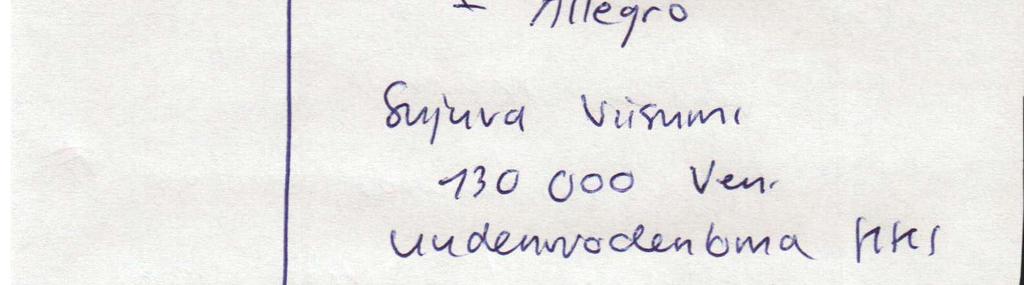 + Allegro
Sujuva Viisumi
130 000 Ven.
uudenvodenloma HKI